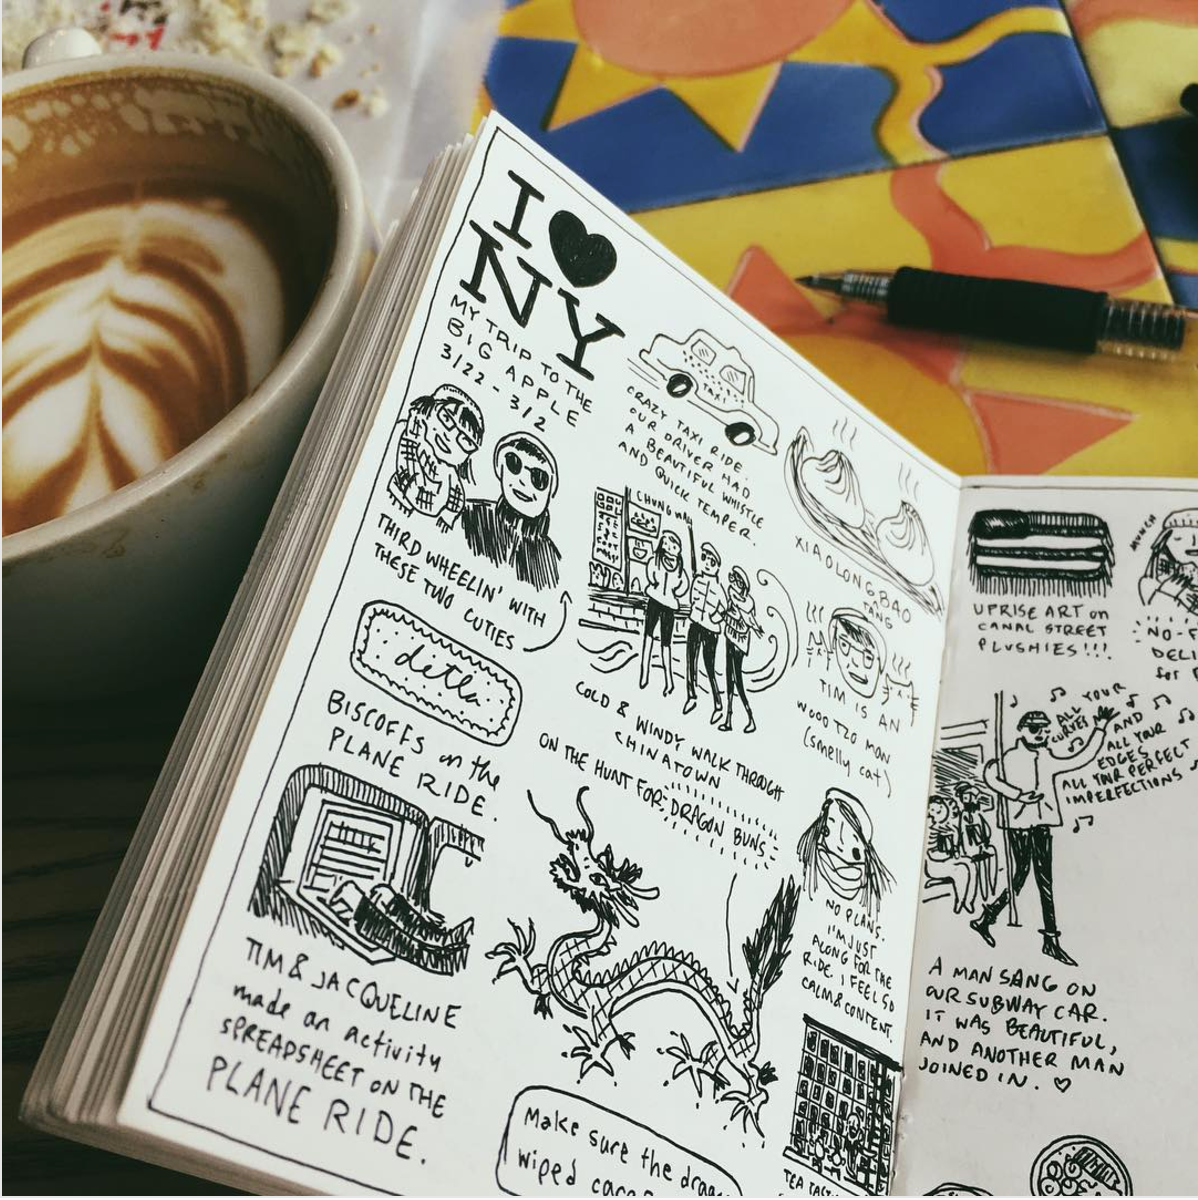 I ♥
NY
MY TRIP TO THE
BIG APPLE
3/22 - 3/2
THIRD WHEELIN' WITH
THESE TWO CUTIES
BISCOFFS on the
PLANE RIDE.
TIM & JACQUELINE
made an activity
SPREADSHEET ON THE
PLANE RIDE.
TAXI
CRAZY TAXI RIDE.
OUR DRIVER HAD
A BEAUTIFUL WHISTLE
AND QUICK TEMPER.
COLD & WINDY WALK THROUGH
CHINATOWN
ON THE HUNT FOR: DRAGON BUNS
Make sure the
wiped
XIAOLONGBAO
TANG
TIM IS AN
MAN
(smelly cat)
NO PLANS.
I'M JUST
ALONG FOR THE
RIDE. I FEEL SO
CALM & CONTENT.
TEA
UPRISE ART on
CANAL STREET
PLUSHIES!!!
MUNCH
for
ALL YOUR
CURVES AND
ALL YOUR
EDGES
ALL YOUR PERFECT
IMPERFECTIONS
A MAN SANG ON
OUR SUBWAY CAR.
IT WAS BEAUTIFUL,
AND ANOTHER MAN
JOINED IN. ♡